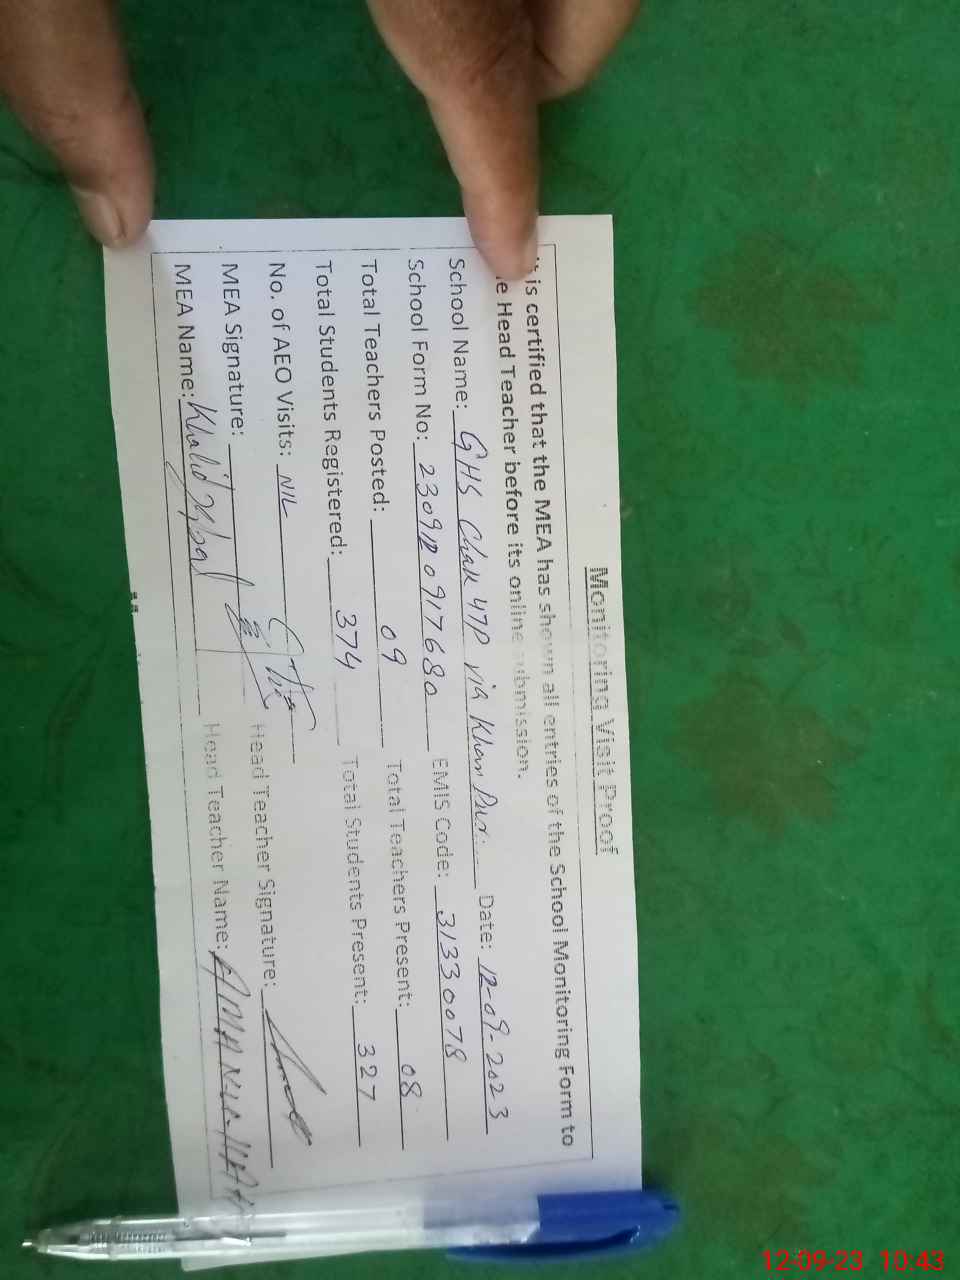 Monitoring Visit Proof
It is certified that the MEA has shown all entries of the School Monitoring Form to
Head Teacher before its online submission.
School Name: GHS Chak 47P via Khan Pur. Date: 12-09-2023
School Form No: 2309120917680 EMIS Code: 31330078
Total Teachers Posted: 09 Total Teachers Present: 08
Total Students Registered: 374 Total Students Present: 327
No. of AEO Visits: NIL
MEA Signature: Head Teacher Signature:
MEA Name: Khalid Iqbal Head Teacher Name: AMANULLAH
12-09-23 10:43